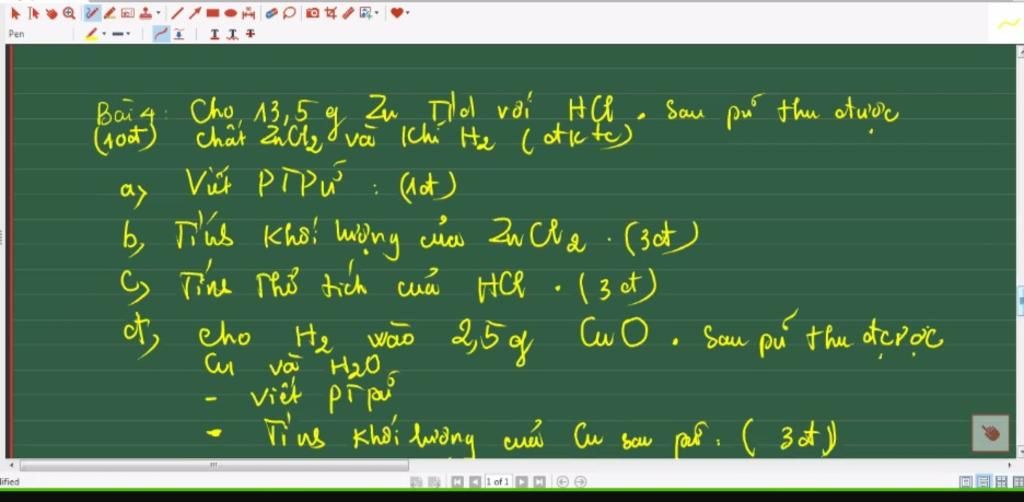 Pen
Bài 4: Cho 13,5 g Zn T/d với HCl. Sau pứ thu được
(10đ) chất ZnCl2 và khí H2 (đktc)
a) Viết PTPứ : (1đ)
b, Tính khối lượng của ZnCl2. (3đ)
c) Tính Thể tích của HCl. (3đ)
d, cho H2 vào 2,5g CuO. Sau pứ thu được
Cu và H2O
- Viết PT pứ
- Tính khối lượng của Cu sau pứ. (3đ)
1 of 1
ified